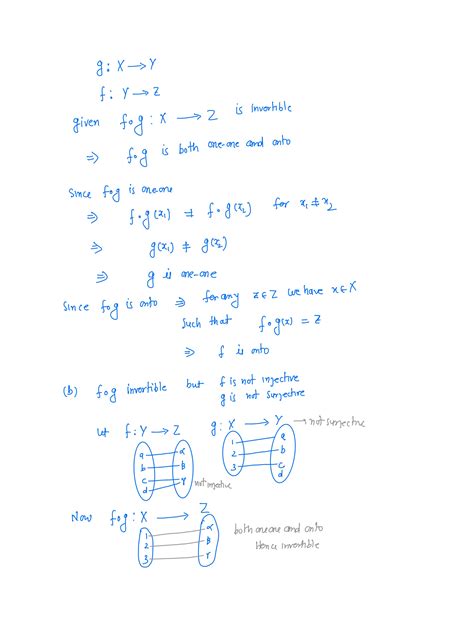 g : X → Y
f : Y → Z
given f∘g : X → Z is invertible
⇒ f∘g is both one-one and onto
Since f∘g is one-one
⇒ f∘g(x₁) ≠ f∘g(x₂) for x₁ ≠ x₂
⇒ g(x₁) ≠ g(x₂)
⇒ g is one-one
Since f∘g is onto ⇒ for any z ∈ Z we have x ∈ X
such that f∘g(x) = z
⇒ f is onto
(b) f∘g invertible but f is not injective
g is not surjective
let f : Y → Z g : X → Y → not surjective
a α 1 a
b β 2 b
c γ 3 c
d not injective d
Now f∘g : X → Z
1 α both one one and onto
2 β Hence invertible
3 γ